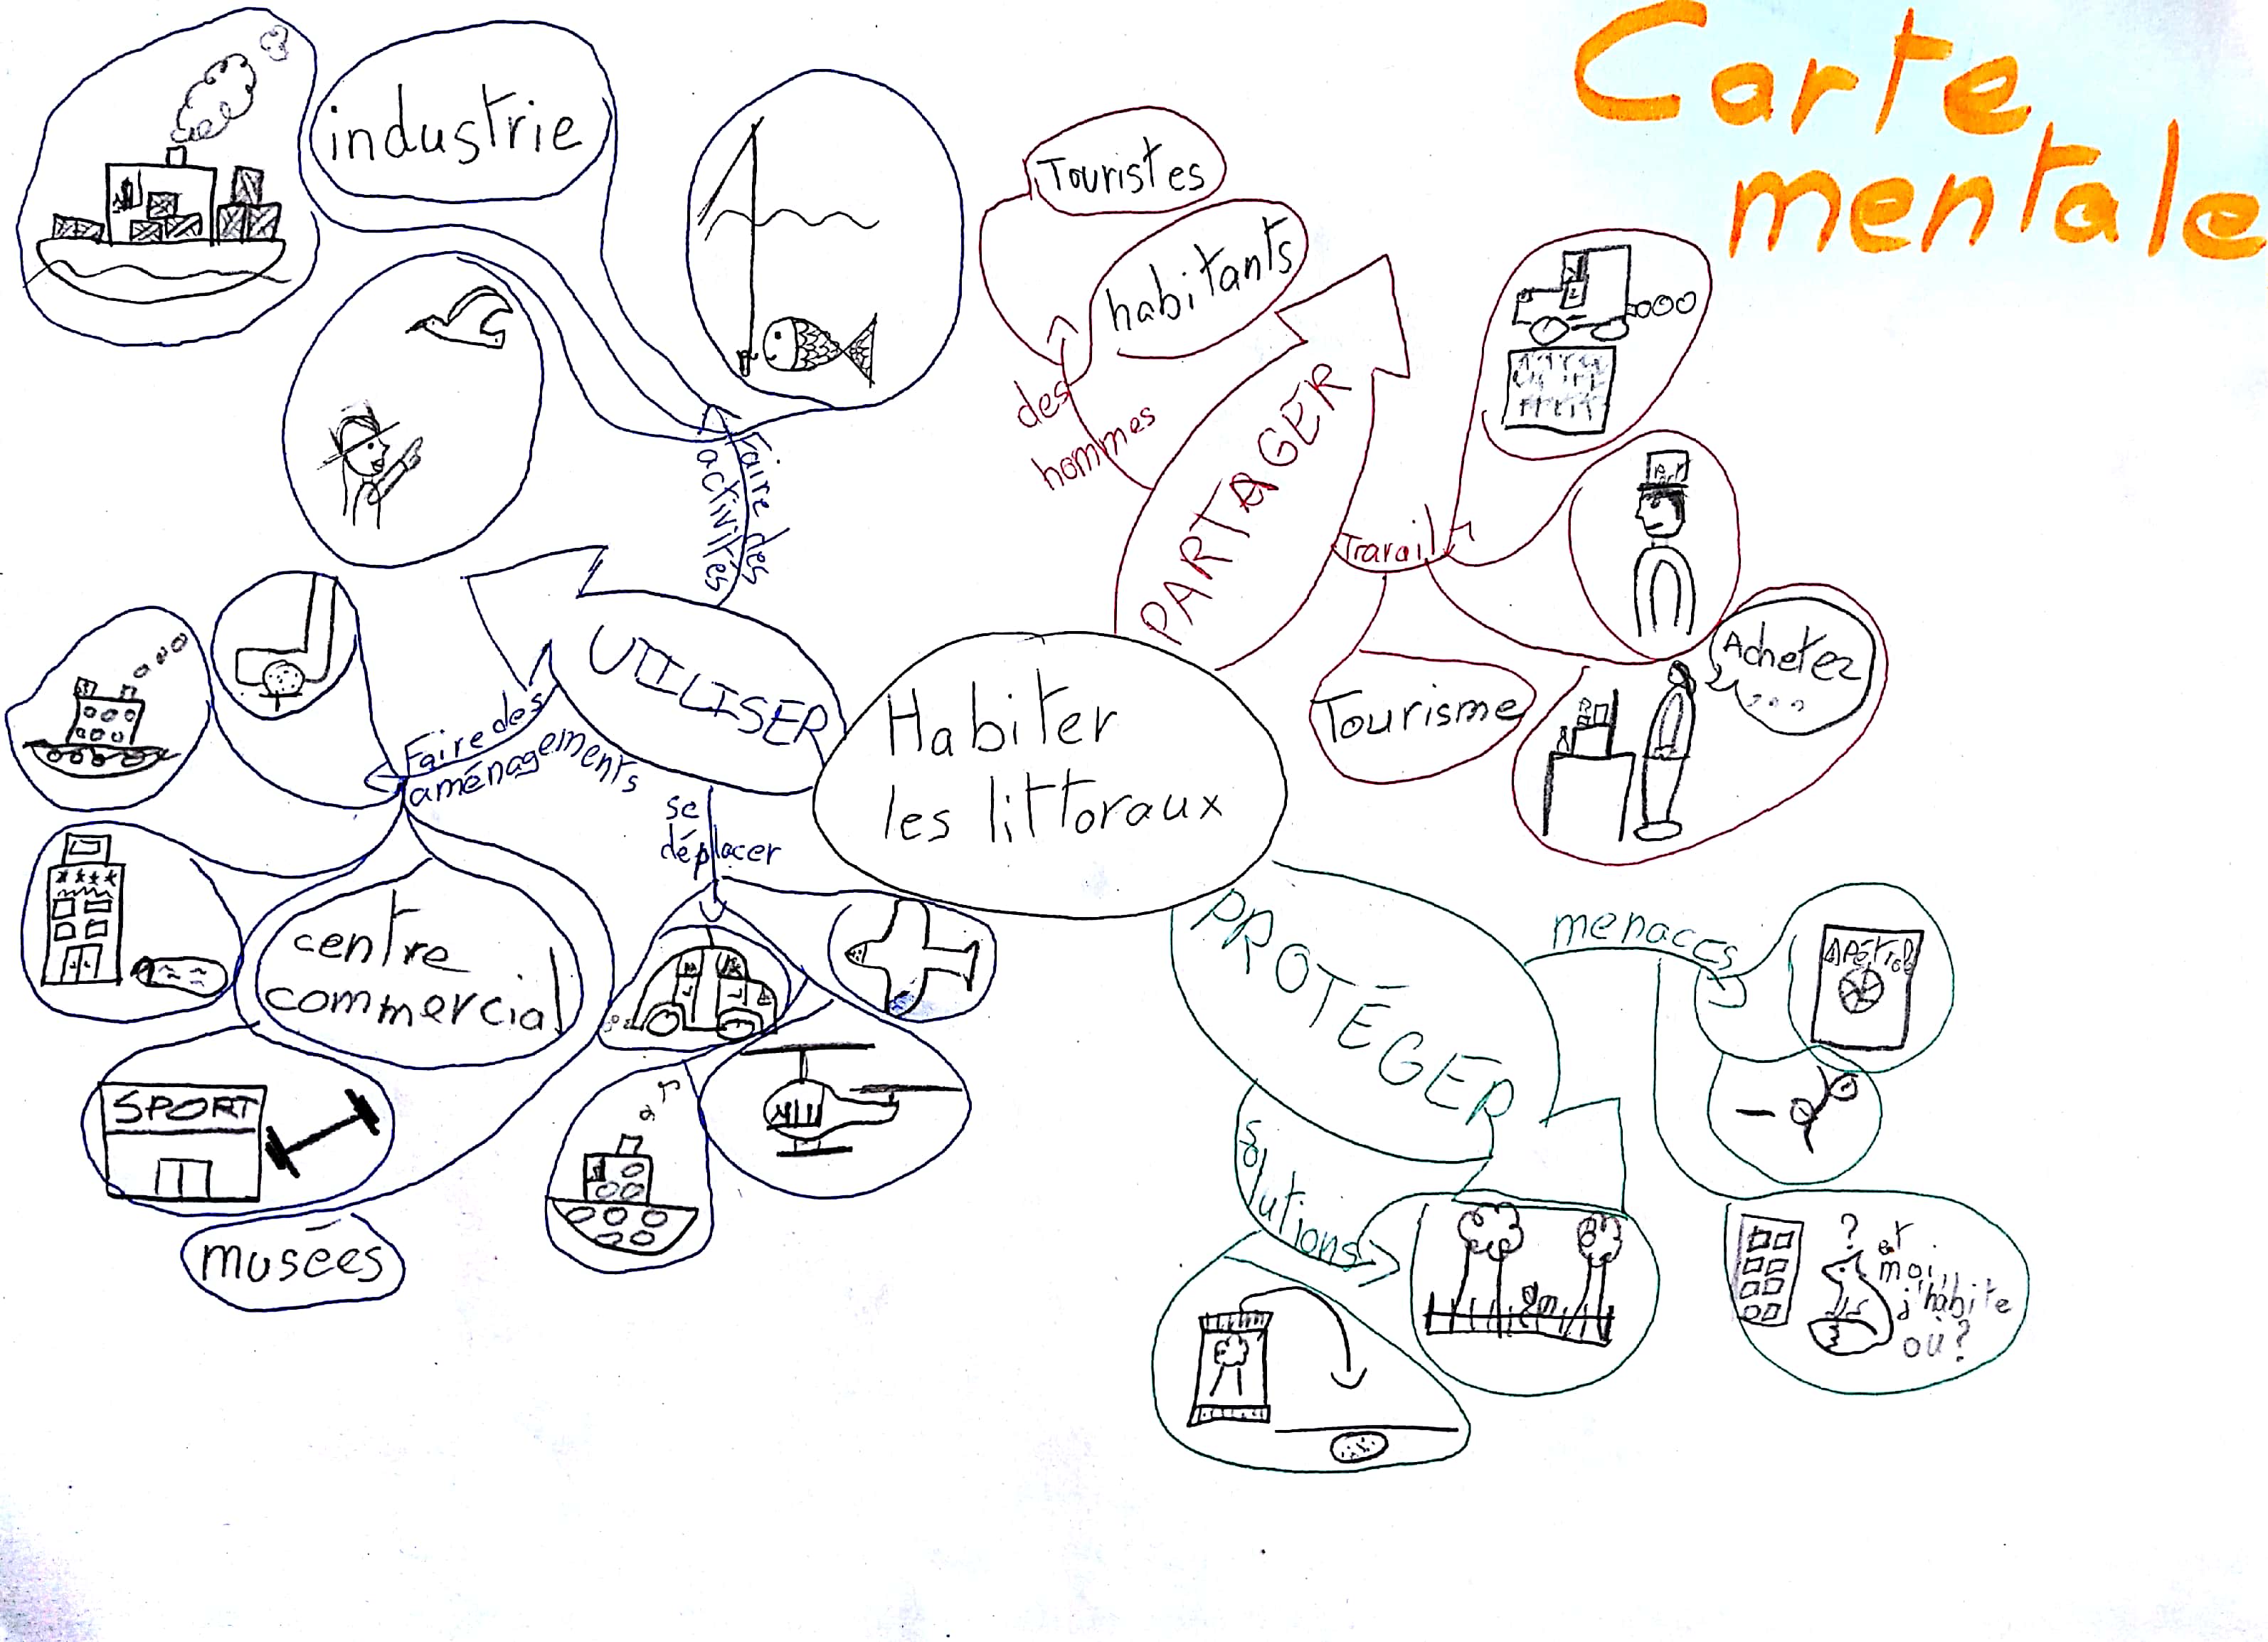 Carte
mentale
industrie
Touristes
habitants
des
hommes
PARTAGER
Travail
Tourisme
Achetez
...
Faire des
activités
UTILISER
Faire des
aménagements
se
déplacer
Habiter
les littoraux
centre
commercial
SPORT
musées
PROTÉGER
menaces
PÉTROLE
solutions
?
et
moi,
j'habite
où?